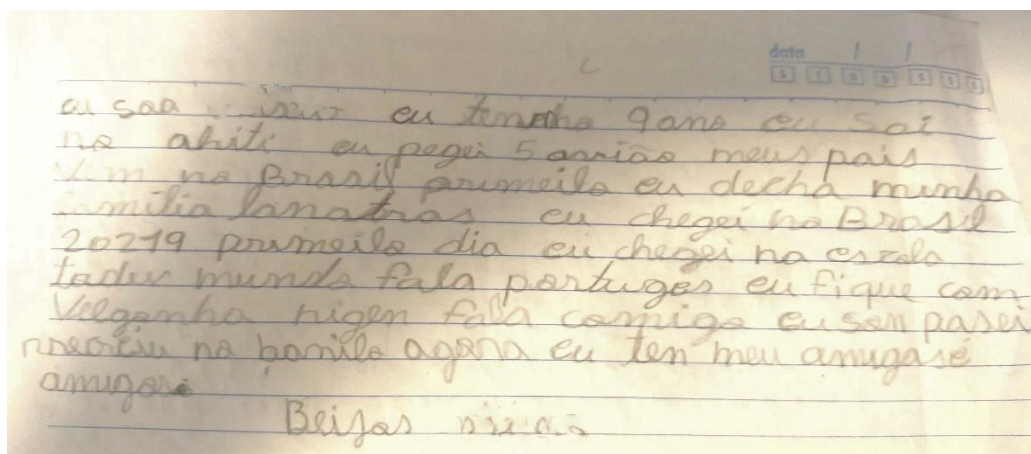 data / /
S T Q Q S S D
eu soo eu tenmho 9 ano eu Sai
no ahiti eu pegei 5 arrião meus pais
Vem no Brasil primeilo eu decha minha
familia lanatras eu chegei no Brasil
20219 primeilo dia eu chegei na escola
tadus mundo fala portuges eu fique com
Velgonha nigen fala comigo eu son pasei
no banilo agora eu ten meu amigas é
amigos
Beijos